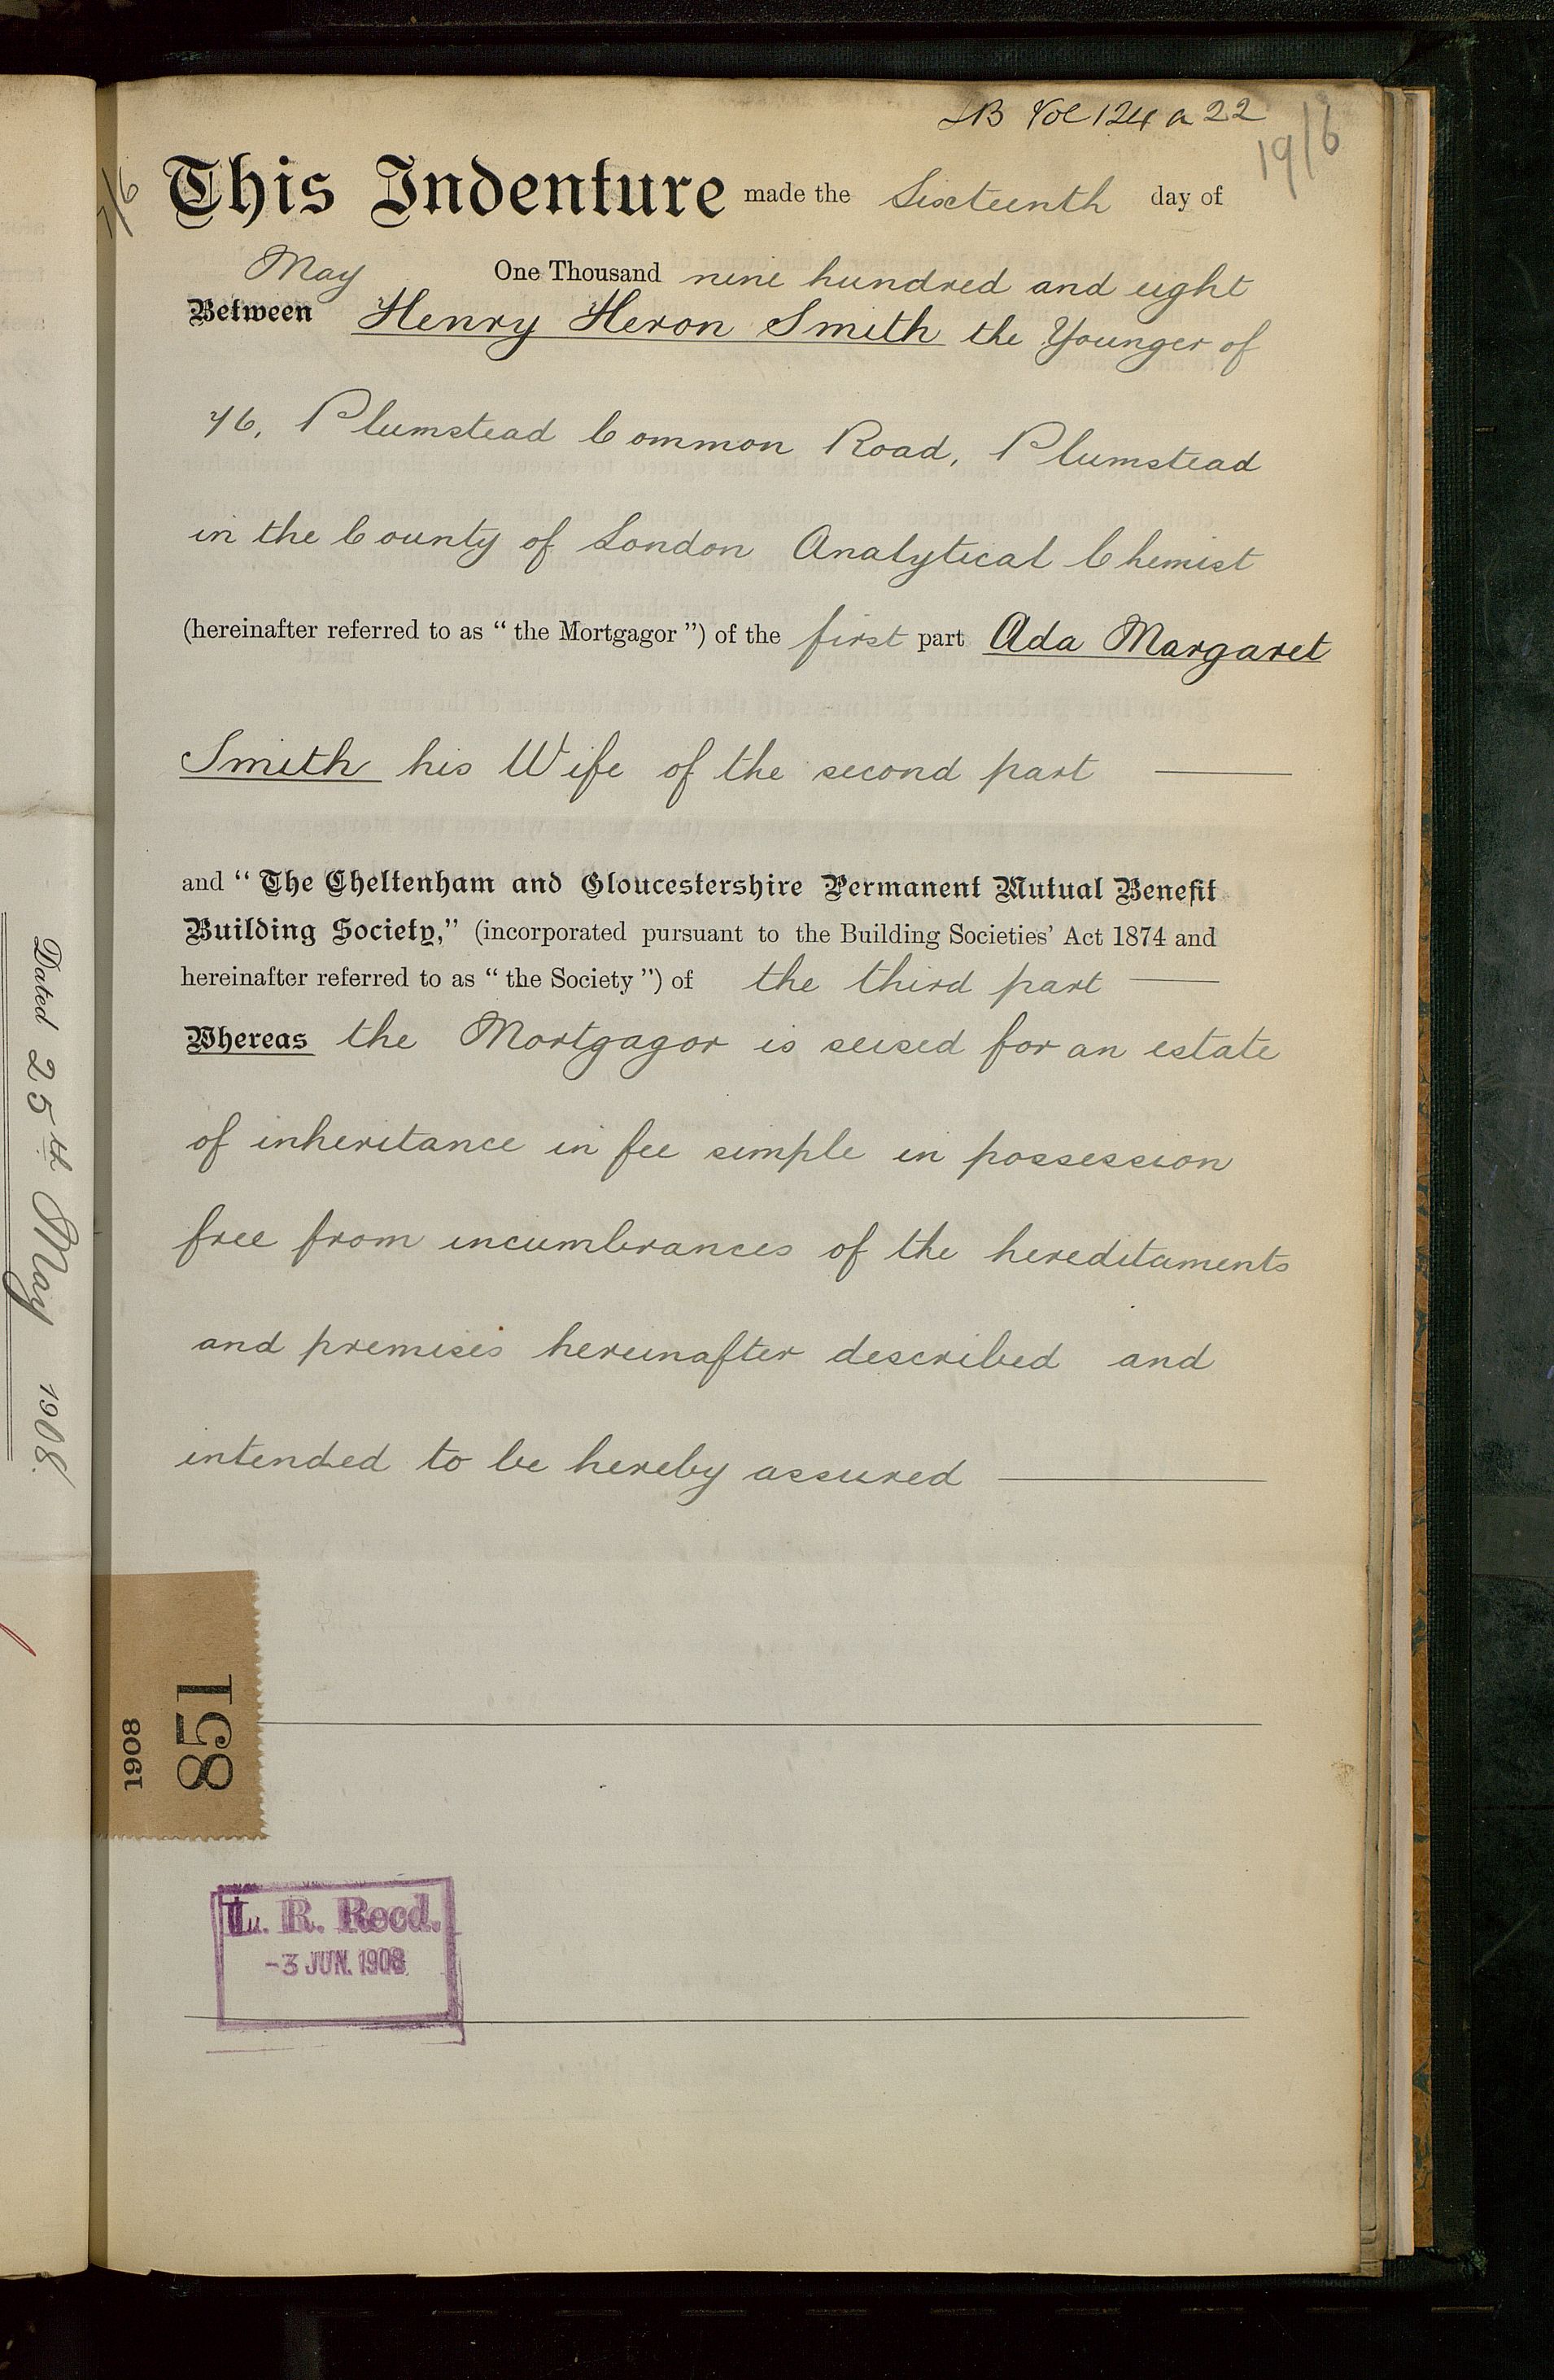 LB Vol 124 a 22
19/6
This Indenture made the Sixteenth day of
May One Thousand nine hundred and eight
Between Henry Heron Smith the Younger of
46, Plumstead Common Road, Plumstead
in the County of London Analytical Chemist
(hereinafter referred to as “ the Mortgagor ”) of the first part Ada Margaret
Smith his Wife of the second part
and “ The Cheltenham and Gloucestershire Permanent Mutual Benefit
Building Society,” (incorporated pursuant to the Building Societies’ Act 1874 and
hereinafter referred to as “ the Society ”) of the third part
Whereas the Mortgagor is seised for an estate
of inheritance in fee simple in possession
free from incumbrances of the hereditaments
and premises hereinafter described and
intended to be hereby assured
1908
851
L. R. Recd.
-3 JUN. 1908
Dated 25th May 1908.